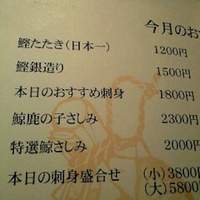 今月のお
鰹たたき(日本一) 1200円
鰹銀造り 1500円
本日のおすすめ刺身 1800円
鯨鹿の子さしみ 2300
特選鯨さしみ 2000
本日の刺身盛合せ (小)3800円
(大)5800